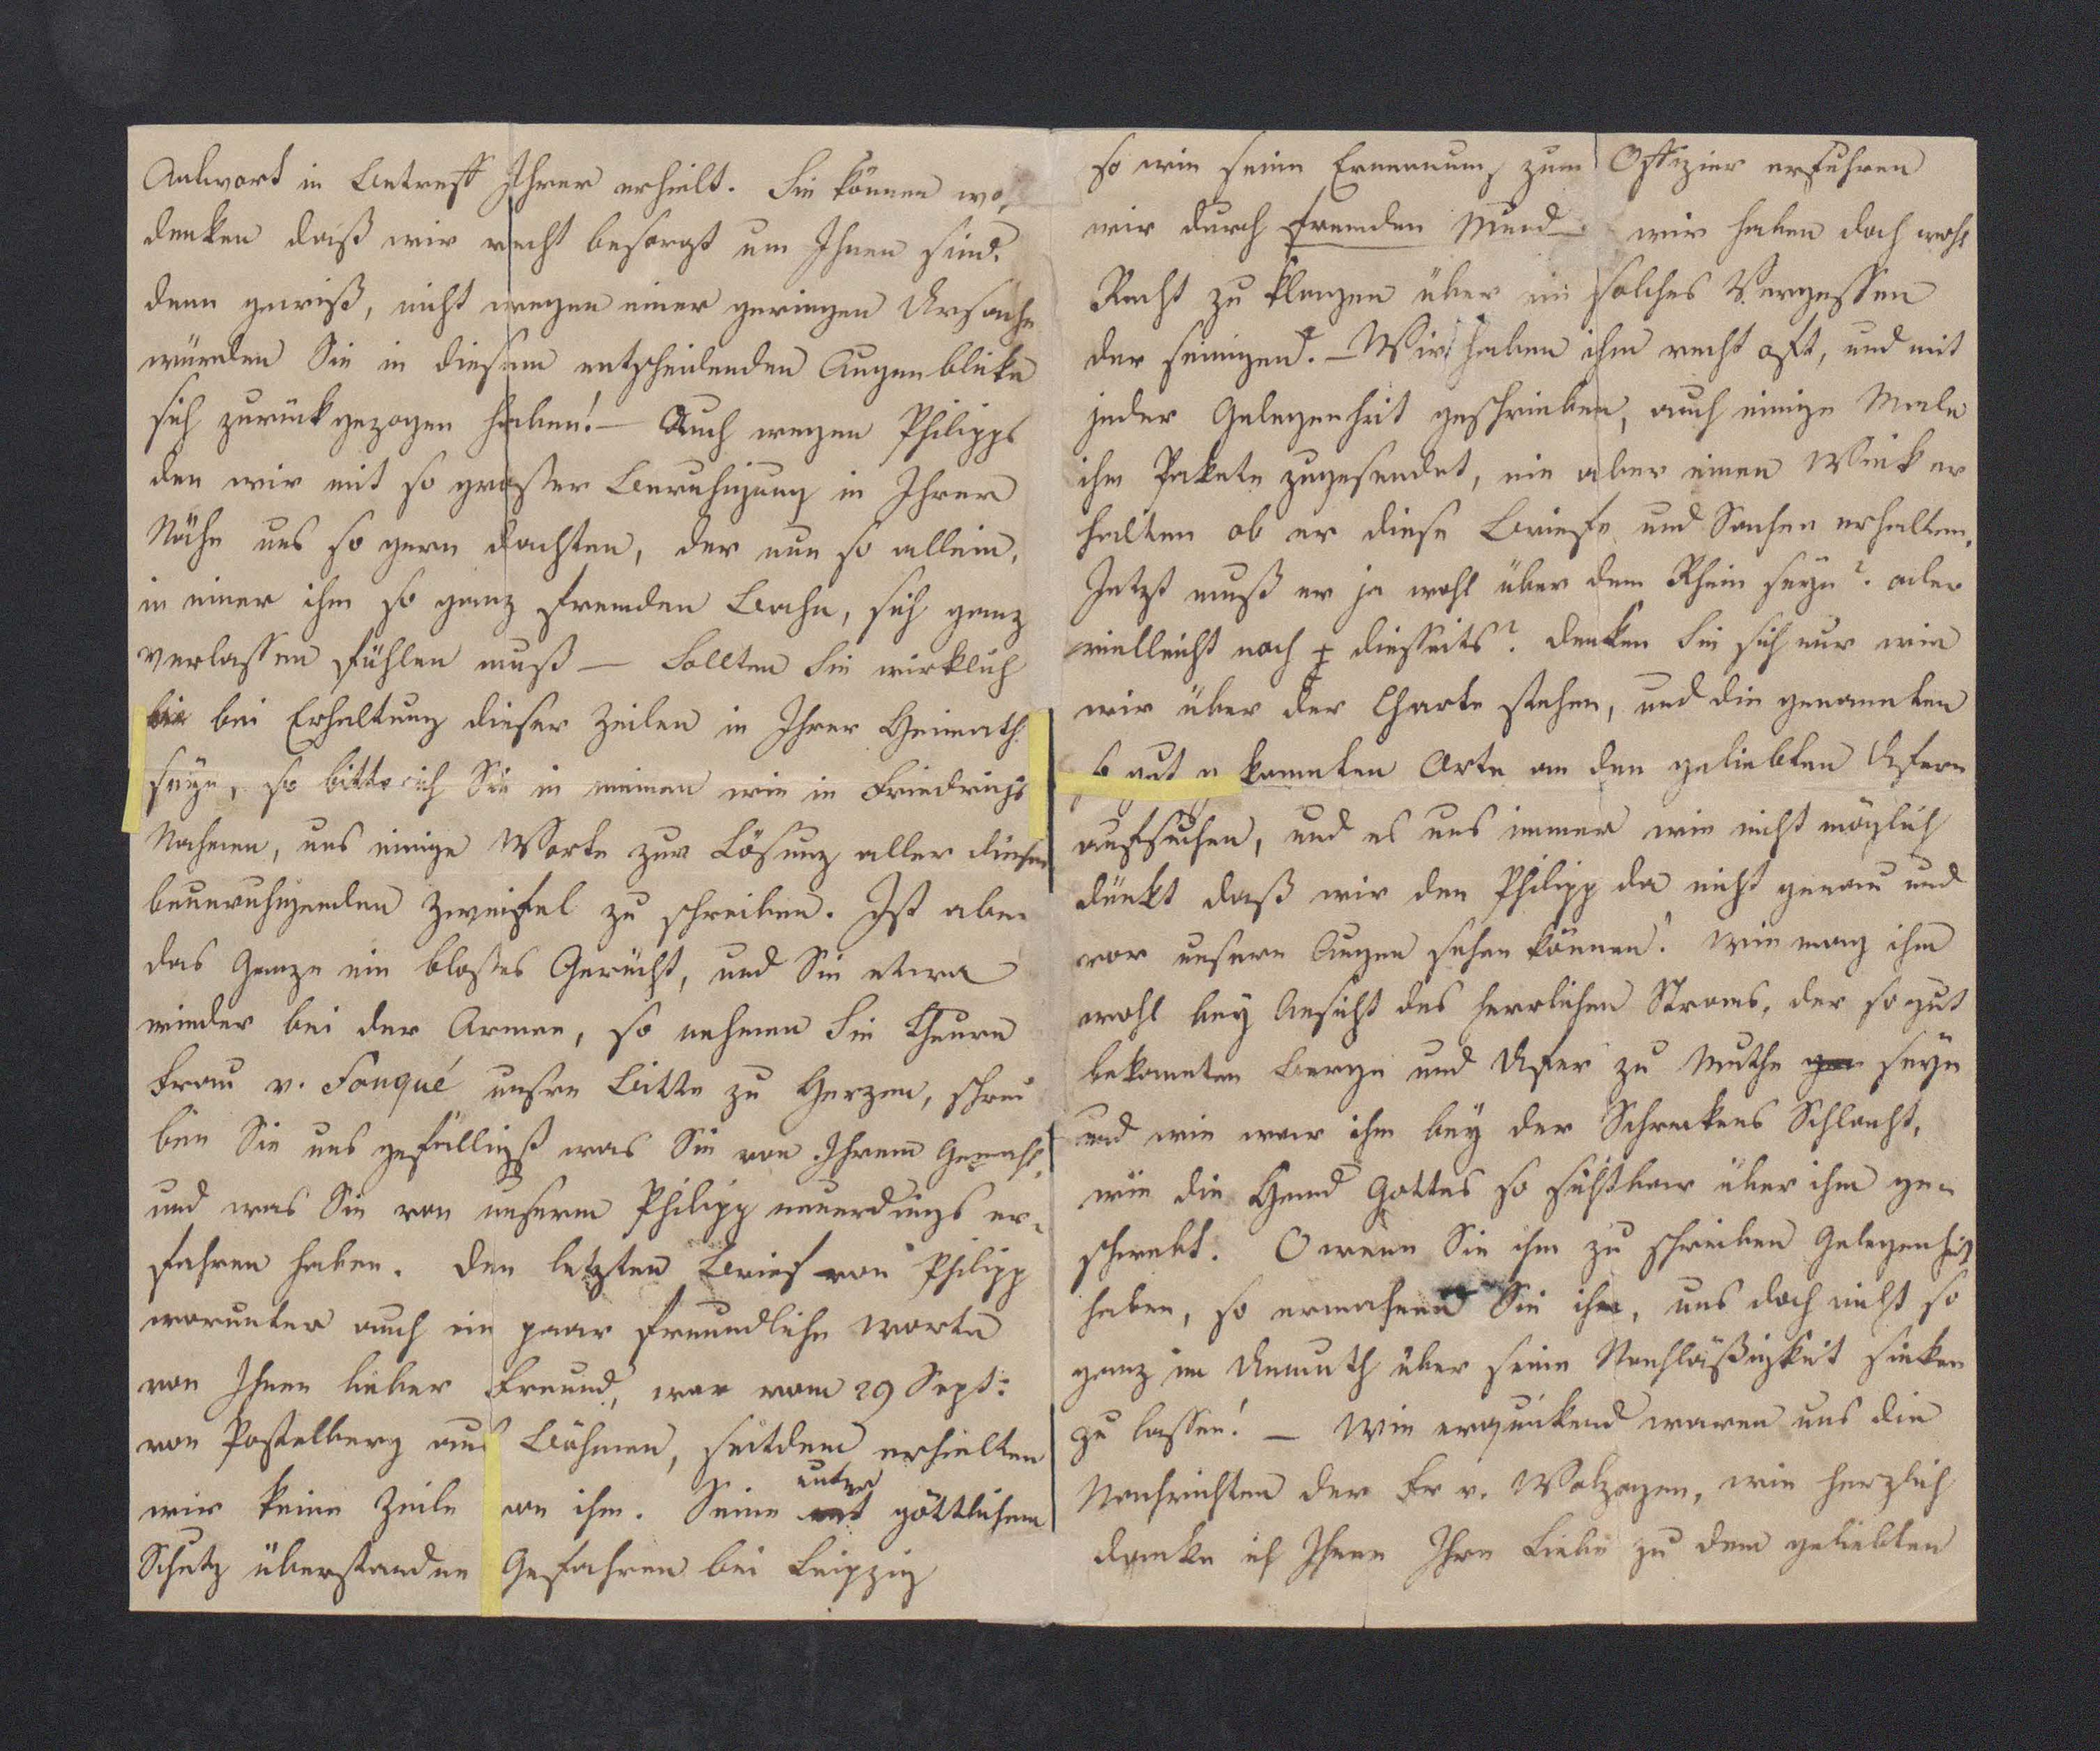 Antwort in Betreff Ihrer erhielt. Sie können wo
denken daß wir recht besorgt um Ihnen sind.
denn gewiß, nicht wegen einer geringen Ursache
würden Sie in diesem entscheidenden Augenblicke
sich zurückgezogen haben! – Auch wegen Philipps
den wir mit so großer Beruhigung in Ihrer
Nähe uns so gern dachten, der nun so allein,
in einer ihm so ganz fremden Bahn, sich ganz
verlassen fühlen muß – Sollten Sie wirklich
bei Erhaltung dieser Zeilen in Ihrer Heimath
seyn, so bitte ich Sie in meinen wie in Friedrichs
Nahmen, uns einige Worte zur Lösung aller dieser
beunruhigenden Zweifel zu schreiben. Ist aber
das Ganze ein bloßes Gerücht, und Sie etwa
wieder bei der Armee, so nehmen Sie theure
Frau v. Fouqué unsre Bitte zu Herzen, schrei
ben Sie uns gefälligst was Sie von Ihrem Gemahl,
und was Sie von unserm Philipp neuerdings er-
fahren haben. Den letzten Brief von Philipp
worunter auch ein paar freundliche Worte
von Ihnen lieber Freund, war vom 29 Sept:
von Postelberg aus Böhmen, seitdem erhielten
wir keine Zeile von ihm. Seine unter göttlichem
Schutz überstandne Gefahren bei Leipzig
so wie seine Ernennung zum Offizier erfuhren
wir durch fremden Mund – wir haben doch wohl
Recht zu klagen über ein solches Vergessen
der seinigen. – Wir haben ihm recht oft, und mit
jeder Gelegenheit geschrieben, auch einige Male
ihm Pakete zugesendet, nie aber einen Wink er
halten ob er diese Briefe und Sachen erhalten.
Jetzt muß er ja wohl über dem Rhein seyn? oder
vielleicht noch diesseits? denken Sie sich nur wie
wir über der Charte stehen, und die genannten
kannten Orte an den geliebten Ufern
aufsuchen, und es uns immer wie nicht möglich
dünkt daß wir den Philipp da nicht genau und
vor unsern Augen sehen können! Wie mag ihm
wohl bey Ansicht des herrlichen Stroms, der so gut
bekannten Berge und Ufer zu Muthe seyn
und wie war ihm bey der Schreckens Schlacht,
wie die Hand Gottes so sichtbar über ihm ge-
schwebt. O wenn Sie ihm zu schreiben Gelegenheit
haben, so ermahnen Sie ihn, uns doch nicht so
ganz im Unmuth über seine Nachläßigkeit sinken
zu lassen! – Wie erquickend waren uns die
Nachrichten der Fr v. Wolzogen, wie herzlich
danke ich Ihnen Ihre Liebe zu dem geliebten